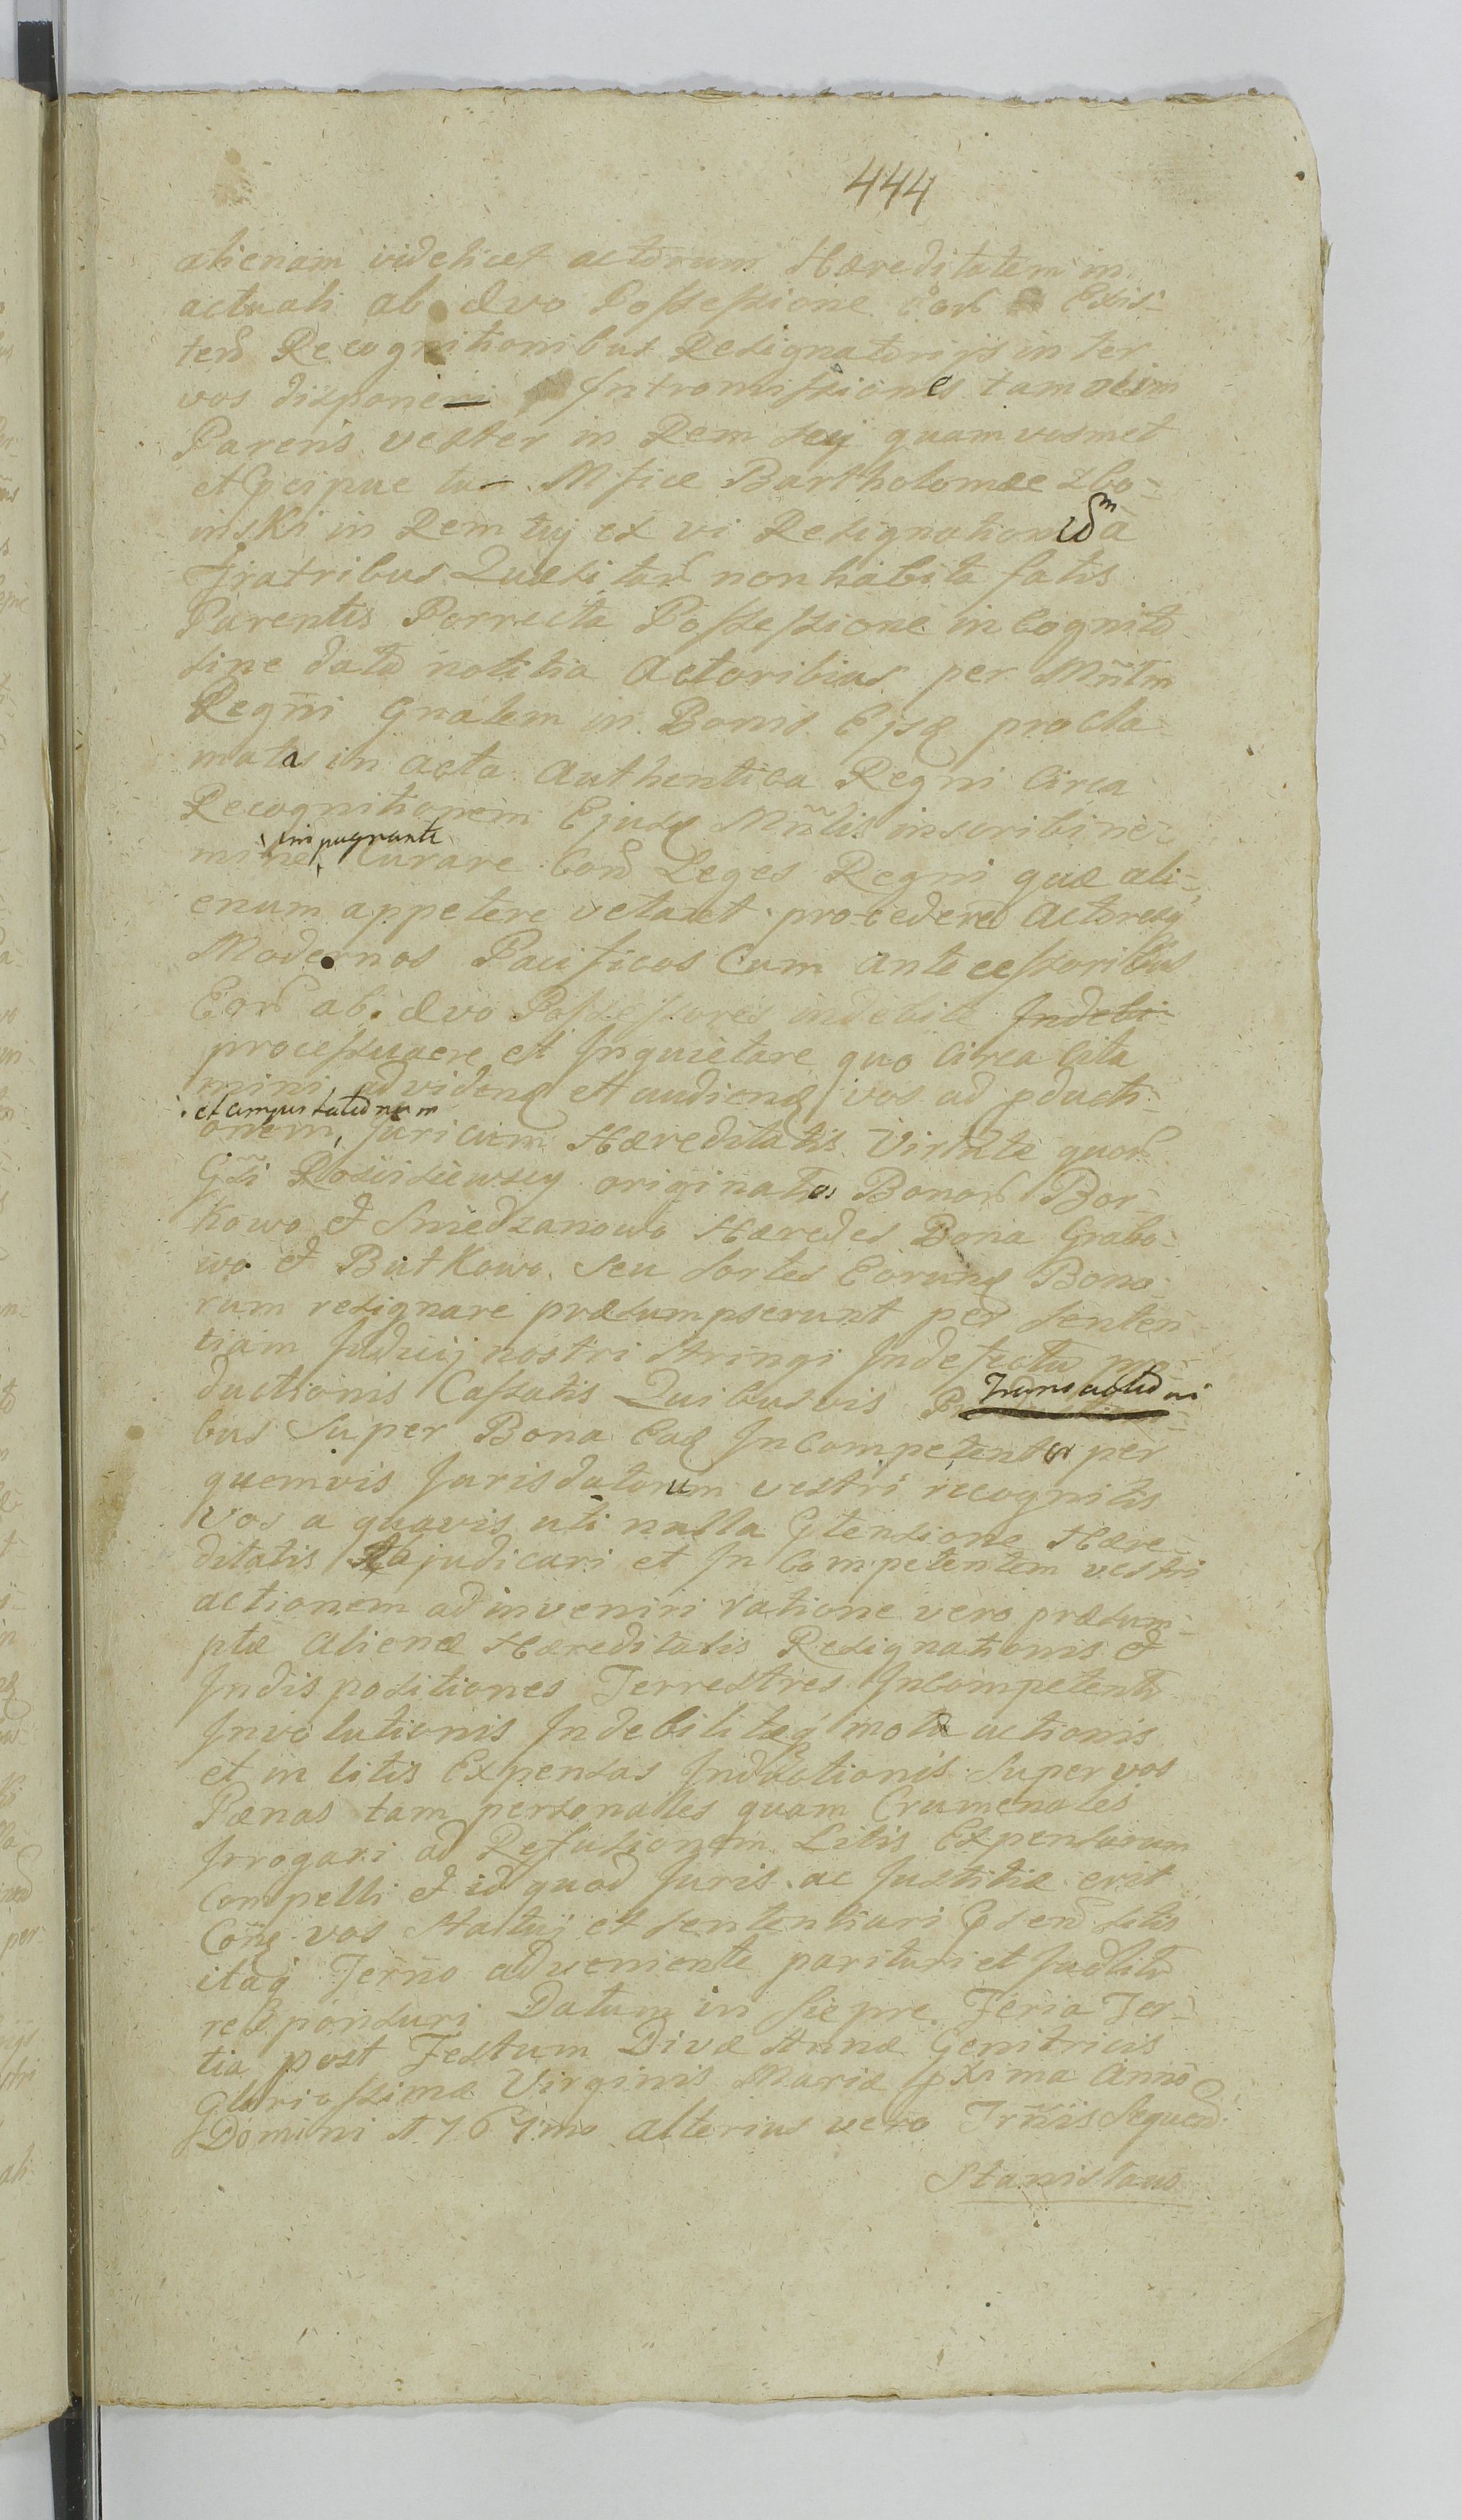 444
alienam videlicet actorum Hæreditatem in
actuali ab ævo Possessione Eor͠ Exis-
ten͠ Recognitionibus Resignatorijs inter
vos disponere Intromissiones tam olim
Parens vester in Rem sui quam vosmet
et præcipue tu Mfice Bartholomæe Zbo-
inski in Rem tuj ex vi Resignationũm a
Fratribus Quæsitar͠ non habita fatis
Parentis Porrecta Possessione incognito
sine data notitia Actoribus per Mñtm
Regñi Gñalem in Bonis Ejsq procla-
matas in acta authentica Regni Circa
Recognitionem Ejusq Mñlis inscribi ne-
mine impugnante Curare Con͠ Leges Regni quæ ali-
enum appetere vetant procedere Actoresq
Modernos Pacificos Cum antecessoribus
Eor͠ ab ævo Possessores indebite Indebi
processuare et Inquietare quo Circa Cita
mini ad videnq et audienq vos ad pducti-
onem, et comportationem Jurium Hæreditatis Virtute quor͠
Gsi Rościszewscy originatos Bonor͠ Bor-
kowo & Smedzanowo Hæredes Bona Grabo-
wo & Butkowo seu sortes Eorunq Bono-
rum resignare præsumpserunt per senten-
tiam Judicij nostri stringi Indefectu pro-
ductionis Cassatis Quibusvis Transactioni
bus Super Bona Eaq Incompetenter per
quemvis Juris datorum vestri recognitis
Vos a quavis uti nulla ptensione Hære-
ditatis Abjudicari et Incompetentem vestri
actionem adinveniri ratione vero præsum-
ptæ Alienæ Hæreditatis Resignationis &
Indispositiones Terrestres Incompetentis
Involutionis Indebitæq motæ actionis
et in litis Expensas Inductionis Super vos
Pænas tam personales quam Crumenales
Irrogari ad Refusionem Litis Expensarum
Compelli & id quod Juris ac Justitiæ erit
Conq vos Statuj et sententiari
itaq Terño adveniente parituri et Judlitr
responsuri Datum in Siepre Feria Ter-
tia post Festum Divæ Annæ Genitricis
Gloriosissimæ Virginis Mariæ pxima Anno
Domini 1767mo alterius vero Trñis Sequen͠
Stanislaus